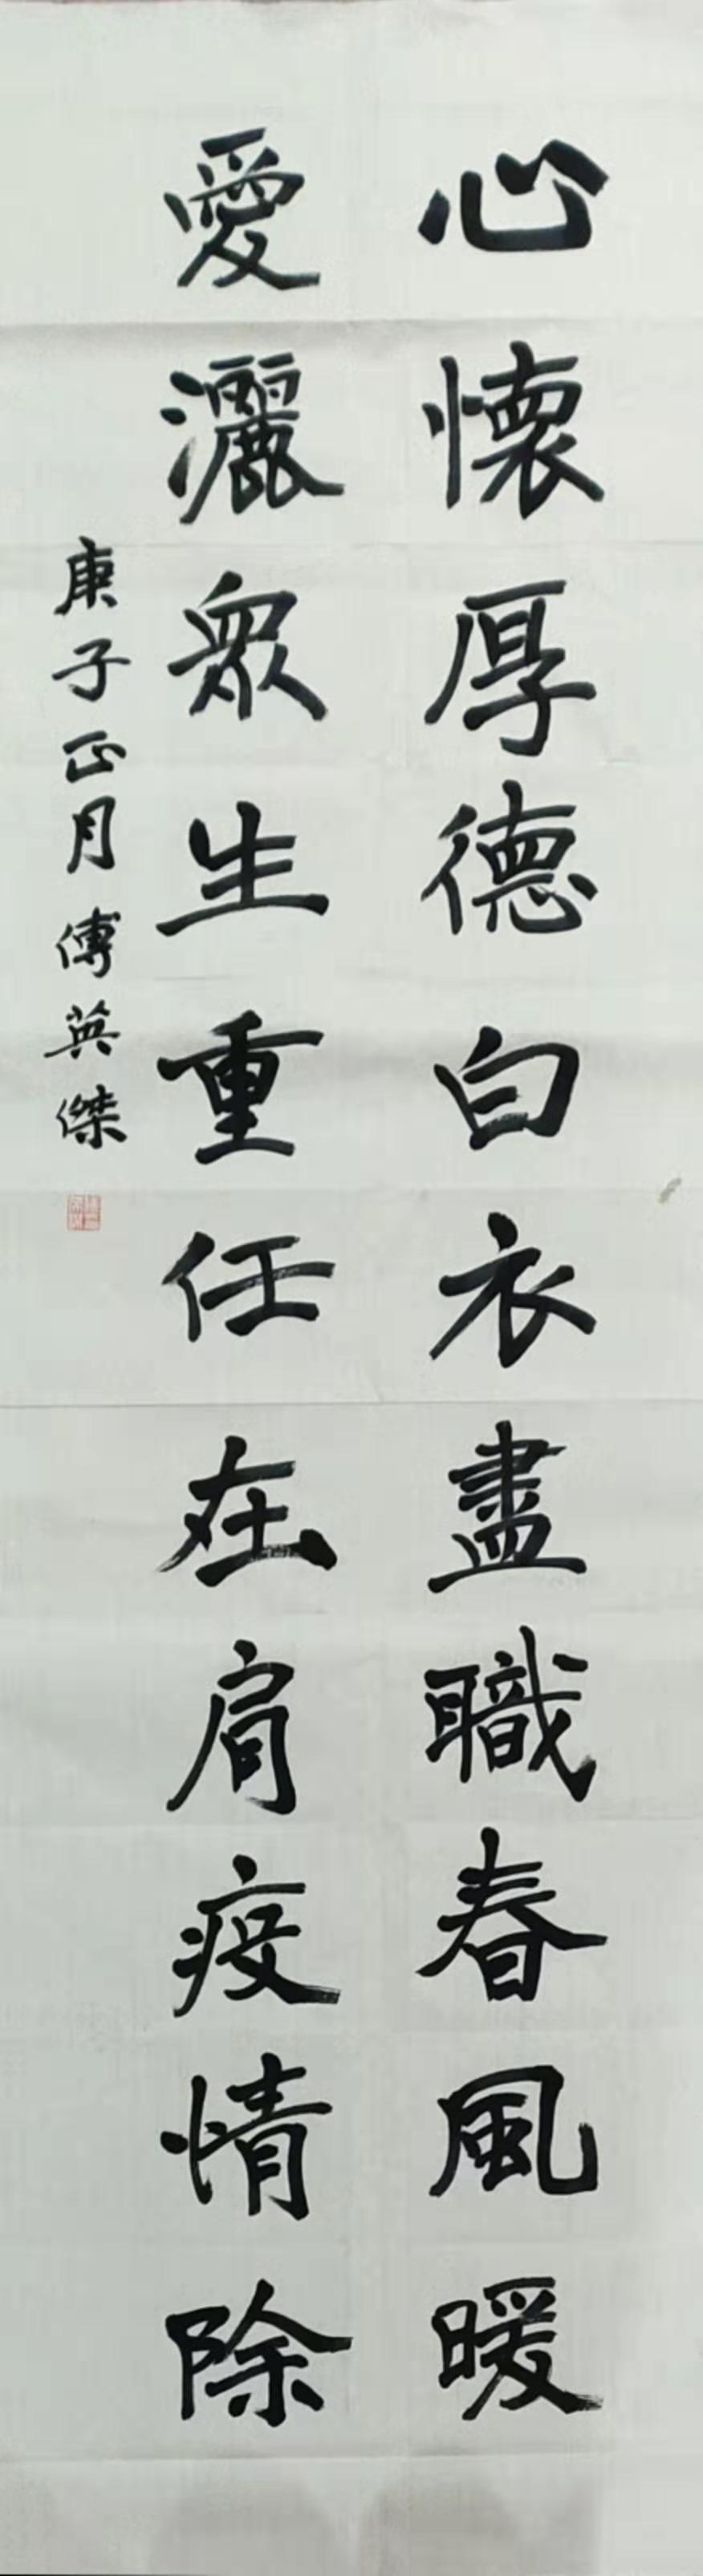 心懷厚德白衣盡職春風暖
愛灑眾生重任在肩疫情除
庚子正月傅英傑